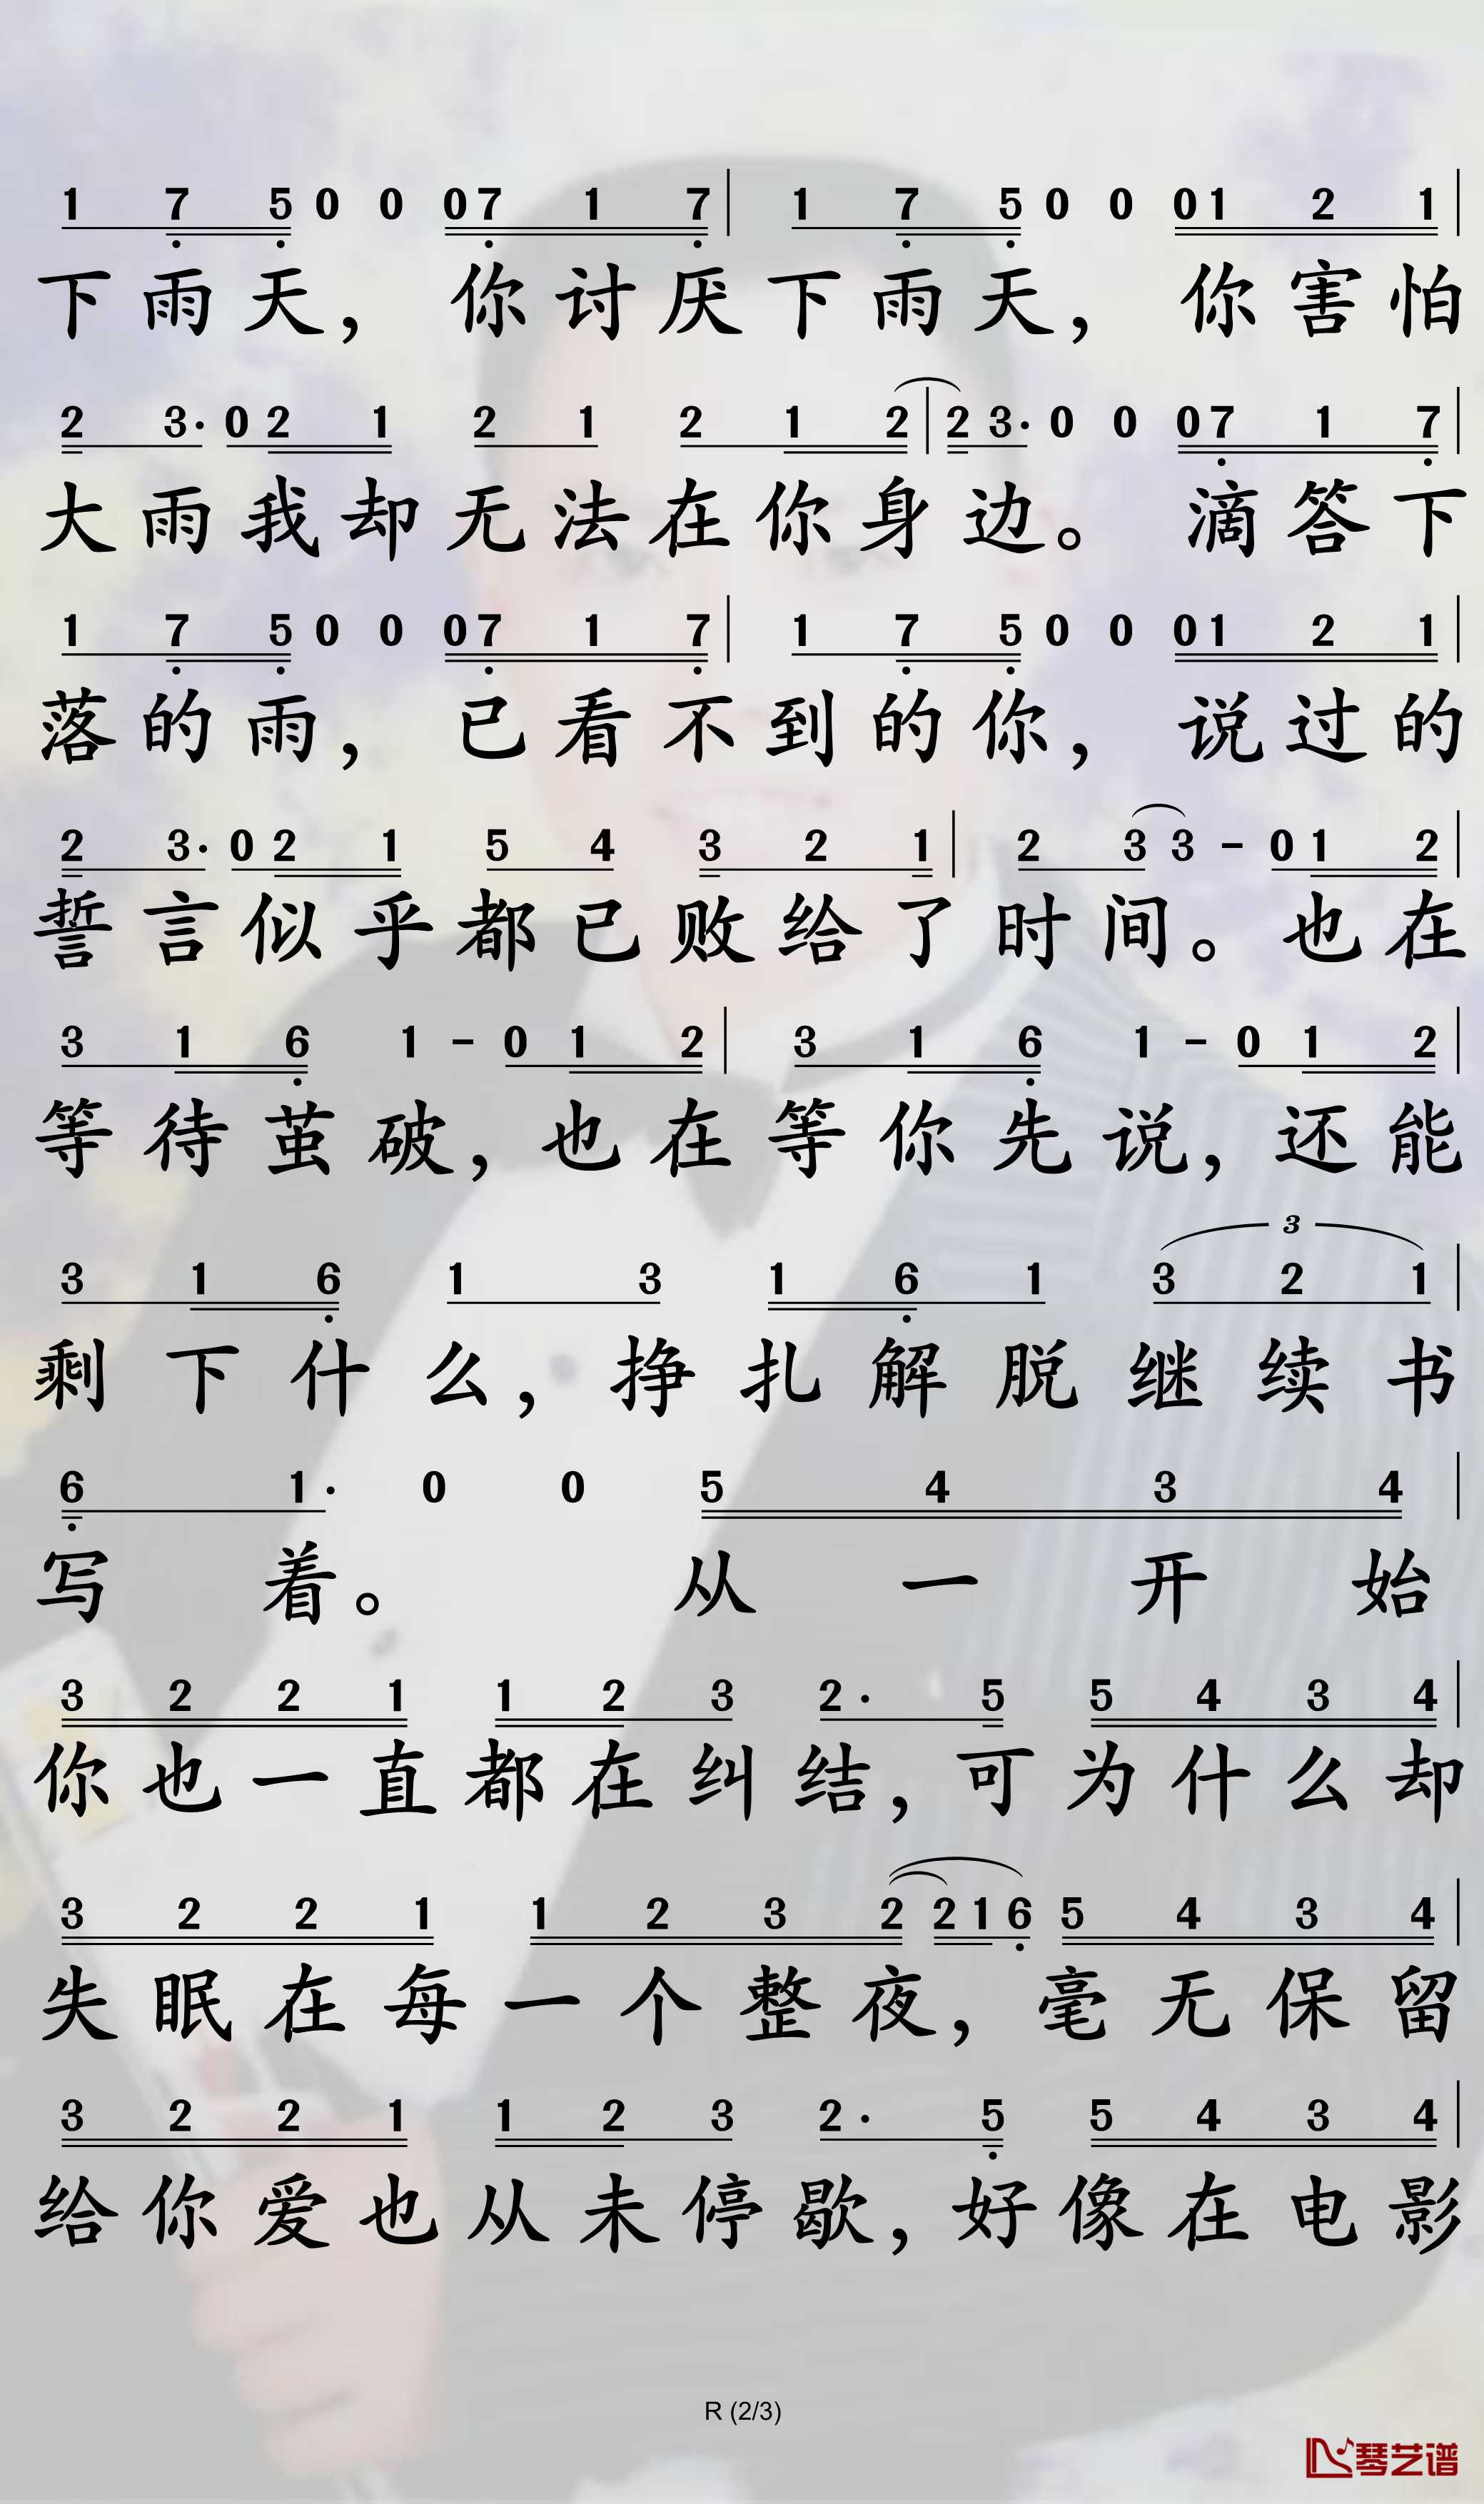 1 7 5 0 0 0 7 1 7 | 1 7 5 0 0 0 1 2 1 |
下雨天， 你讨厌下雨天， 你害怕
2 3· 0 2 1 2 1 2 1 2 | 2 3· 0 0 0 7 1 7 |
大雨我却无法在你身边。 滴答下
1 7 5 0 0 0 7 1 7 | 1 7 5 0 0 0 1 2 1 |
落的雨， 已看不到的你， 说过的
2 3· 0 2 1 5 4 3 2 1 | 2 3 3 - 0 1 2 |
誓言似乎都已败给了时间。也在
3 1 6 1 - 0 1 2 | 3 1 6 1 - 0 1 2 |
等待茧破，也在等你先说，还能
3
3 1 6 1 3 1 6 1 3 2 1 |
剩下什么，挣扎解脱继续书
6 1· 0 0 5 4 3 4 |
写着。 从一开始
3 2 2 1 1 2 3 2· 5 5 4 3 4 |
你也一直都在纠结，可为什么却
3 2 2 1 1 2 3 2 2 1 6 5 4 3 4 |
失眠在每一个整夜，毫无保留
3 2 2 1 1 2 3 2· 5 5 4 3 4 |
给你爱也从未停歇，好像在电影
R (2/3)
琴艺谱